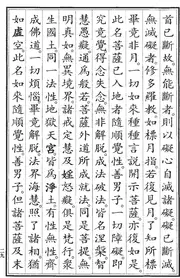 首已斷故無能斷者則以礙心自滅諸礙礙已斷滅
無滅礙者修多羅教如標月指若復見月了知所標
畢竟非月一切如來種種言說開示菩薩亦復如是
此名菩薩已入地者隨順覺性善男子一切障礙即
究竟覺得念失念無非解脫成法破法皆名涅槃智
慧愚癡通為般若菩薩外道所成就法同是菩提無
明真如無異境界諸戒定慧及婬怒癡俱是梵行眾
生國土同一法性地獄天宮皆為淨土有性無性齊
成佛道一切煩惱畢竟解脫法界海慧照了諸相猶
如虛空此名如來隨順覺性善男子但諸菩薩及末